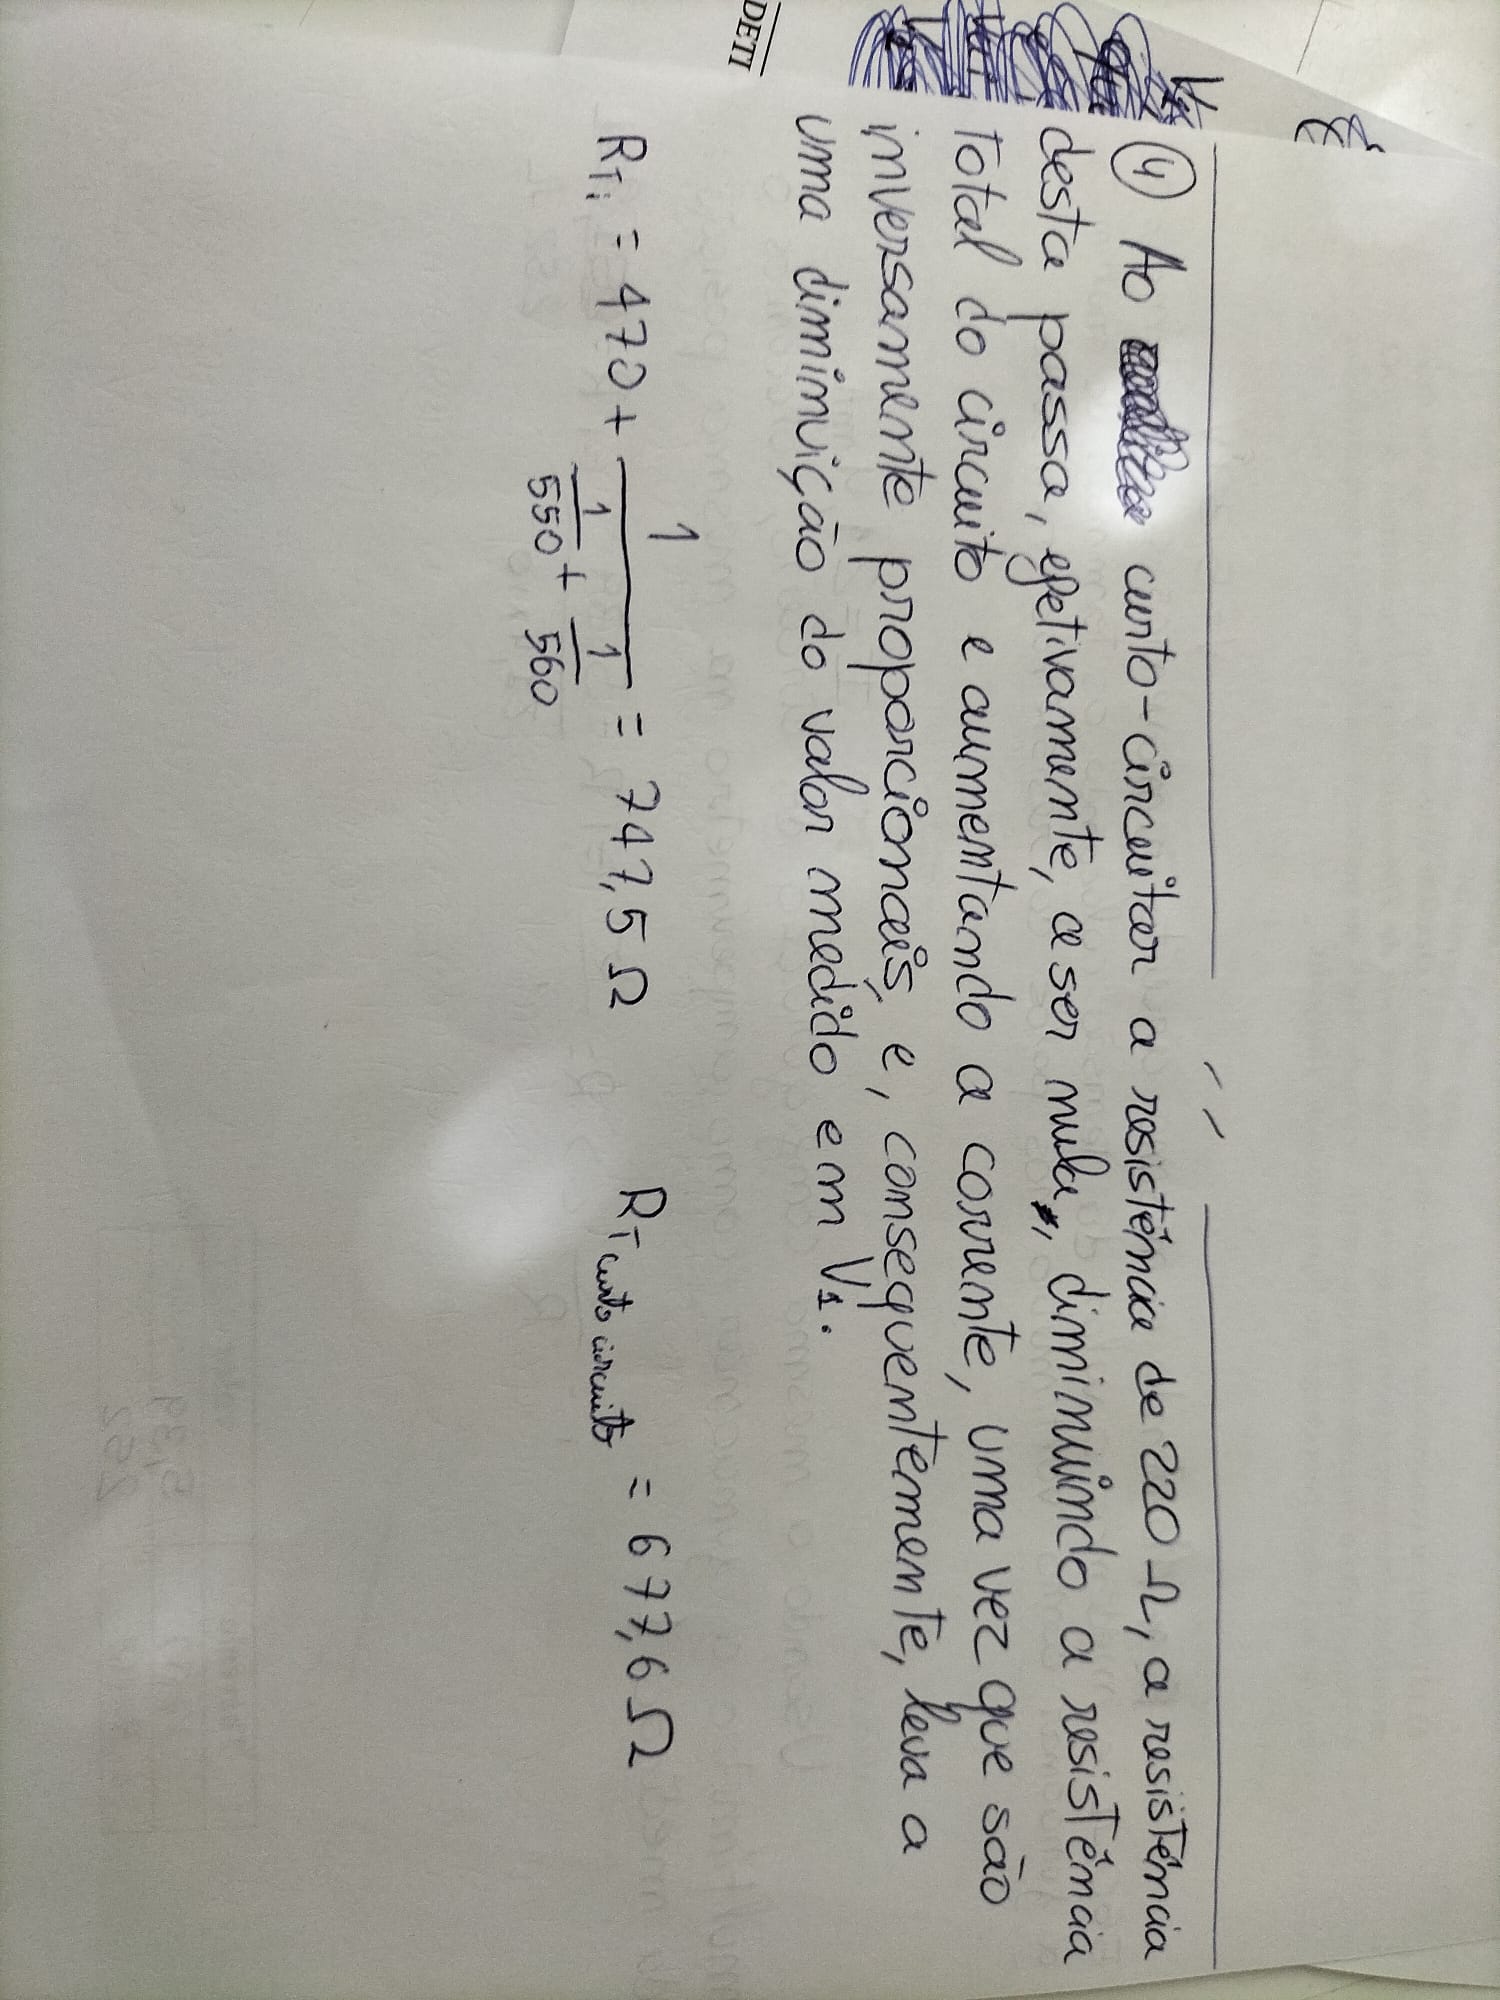 DETI
④ Ao curto-circuitar a resistência de 220 Ω, a resistência
desta passa, efetivamente, a ser nula, diminuindo a resistência
total do circuito e aumentando a corrente, uma vez que são
inversamente proporcionais, e, consequentemente, leva a
uma diminuição do valor medido em V₁.
R_Ti = 470 + 1 / (1/550 + 1/560) = 747,5 Ω
R_T curto circuito = 677,6 Ω